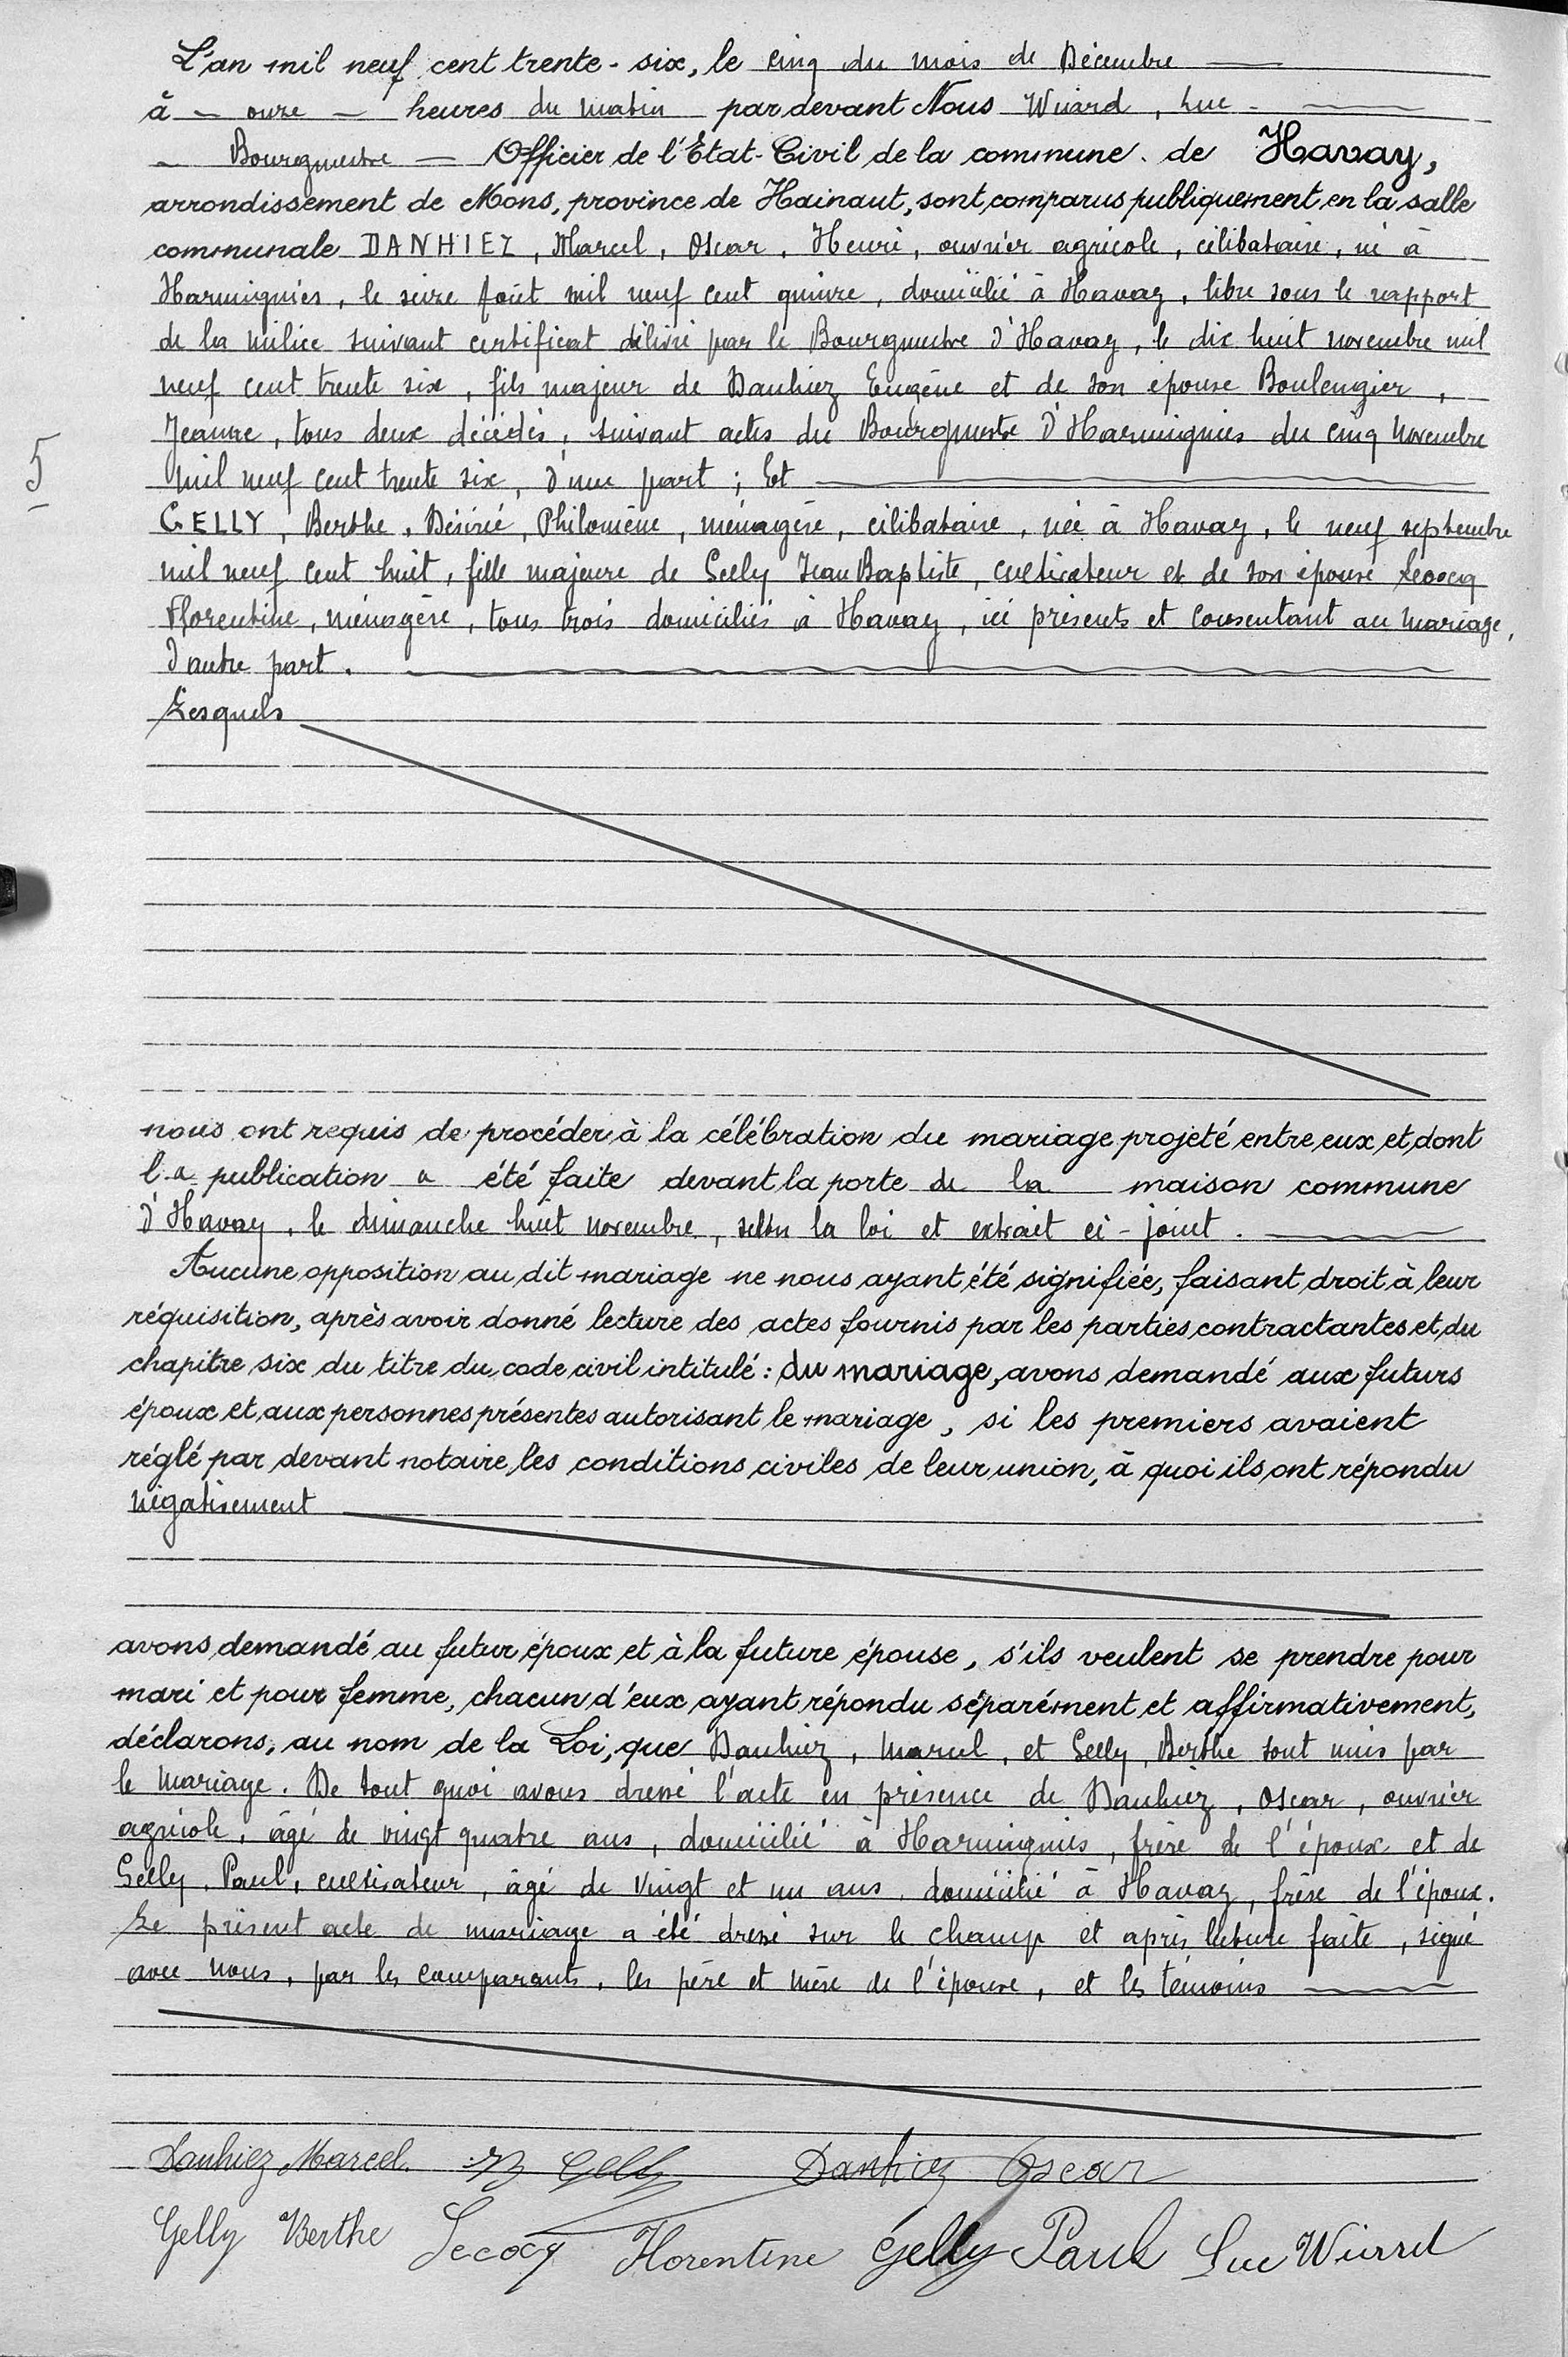 L'an mil neuf cent trente-six, le cinq du mois de Décembre
à onze heures du matin par devant Nous Wuiard, Luc
Bourgmestre Officier de l'État-Civil de la commune de Havay,
arrondissement de Mons, province de Hainaut, sont comparus publiquement en la salle
communale DANHIEZ, Marcel, Oscar, Henri, ouvrier agricole, célibataire, né à
Harmignies, le seize Août mil neuf cent quinze, domicilié à Havay, libre sous le rapport
de la milice suivant certificat délivré par le Bourgmestre d'Havay, le dix huit novembre mil
neuf cent trente six, fils majeur de Danhiez Eugène et de son épouse Boulengier,
Jeanne, tous deux décédés, suivant actes du Bourgmestre d'Harmignies du cinq Novembre
5
mil neuf cent trente six, d'une part ; Et
GELLY, Berthe, Désirée, Philomène, ménagère, célibataire, née à Havay, le neuf septembre
mil neuf cent huit, fille majeure de Gelly Jean Baptiste, cultivateur et de son épouse Lecocq
Florentine, ménagère, tous trois domiciliés à Havay, ici présents et consentant au mariage,
d'autre part.
Lesquels
nous ont requis de procéder à la célébration du mariage projeté entre eux et dont
la publication a été faite devant la porte de la maison commune
d'Havay, le dimanche huit novembre, selon la loi et extrait ci-joint.
Aucune opposition au dit mariage ne nous ayant été signifiée, faisant droit à leur
réquisition, après avoir donné lecture des actes fournis par les parties contractantes et du
chapitre six du titre du code civil intitulé : du mariage, avons demandé aux futurs
époux et aux personnes présentes autorisant le mariage, si les premiers avaient
réglé par devant notaire les conditions civiles de leur union, à quoi ils ont répondu
négativement
avons demandé au futur époux et à la future épouse, s'ils veulent se prendre pour
mari et pour femme, chacun d'eux ayant répondu séparément et affirmativement,
déclarons, au nom de la Loi, que Danhiez, Marcel, et Gelly, Berthe sont unis par
le mariage. De tout quoi avons dressé l'acte en présence de Danhiez, Oscar, ouvrier
agricole, âgé de vingt quatre ans, domicilié à Harmignies, frère de l'époux et de
Gelly, Paul, cultivateur, âgé de vingt et un ans, domicilié à Havay, frère de l'époux.
Le présent acte de mariage a été dressé sur le champ et après lecture faite, signé
avec nous, par les comparants, les père et mère de l'épouse, et les témoins
Danhiez Marcel JB Gelly Danhiez Oscar
Gelly Berthe Lecocq Florentine Gelly Paul Luc Wiard